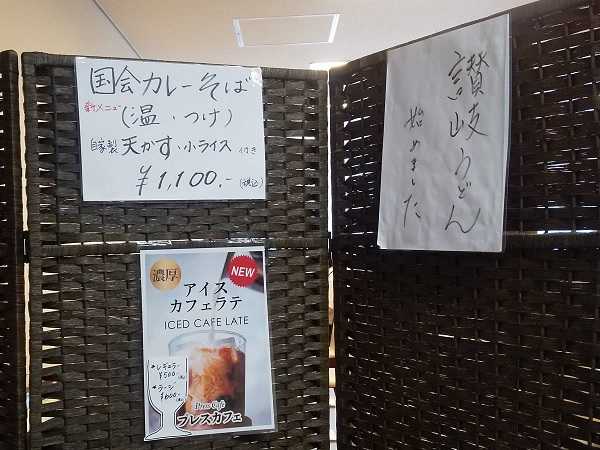 国会カレーそば
新メニュー
(温・つけ)
自家製 天かす・小ライス 付き
¥1,100.-(税込)
讃岐うどん
始めました
濃厚
NEW
アイス
カフェラテ
ICED CAFE LATE
*レギュラー
¥500
*ラージ
¥600
Press Cafe
プレスカフェ